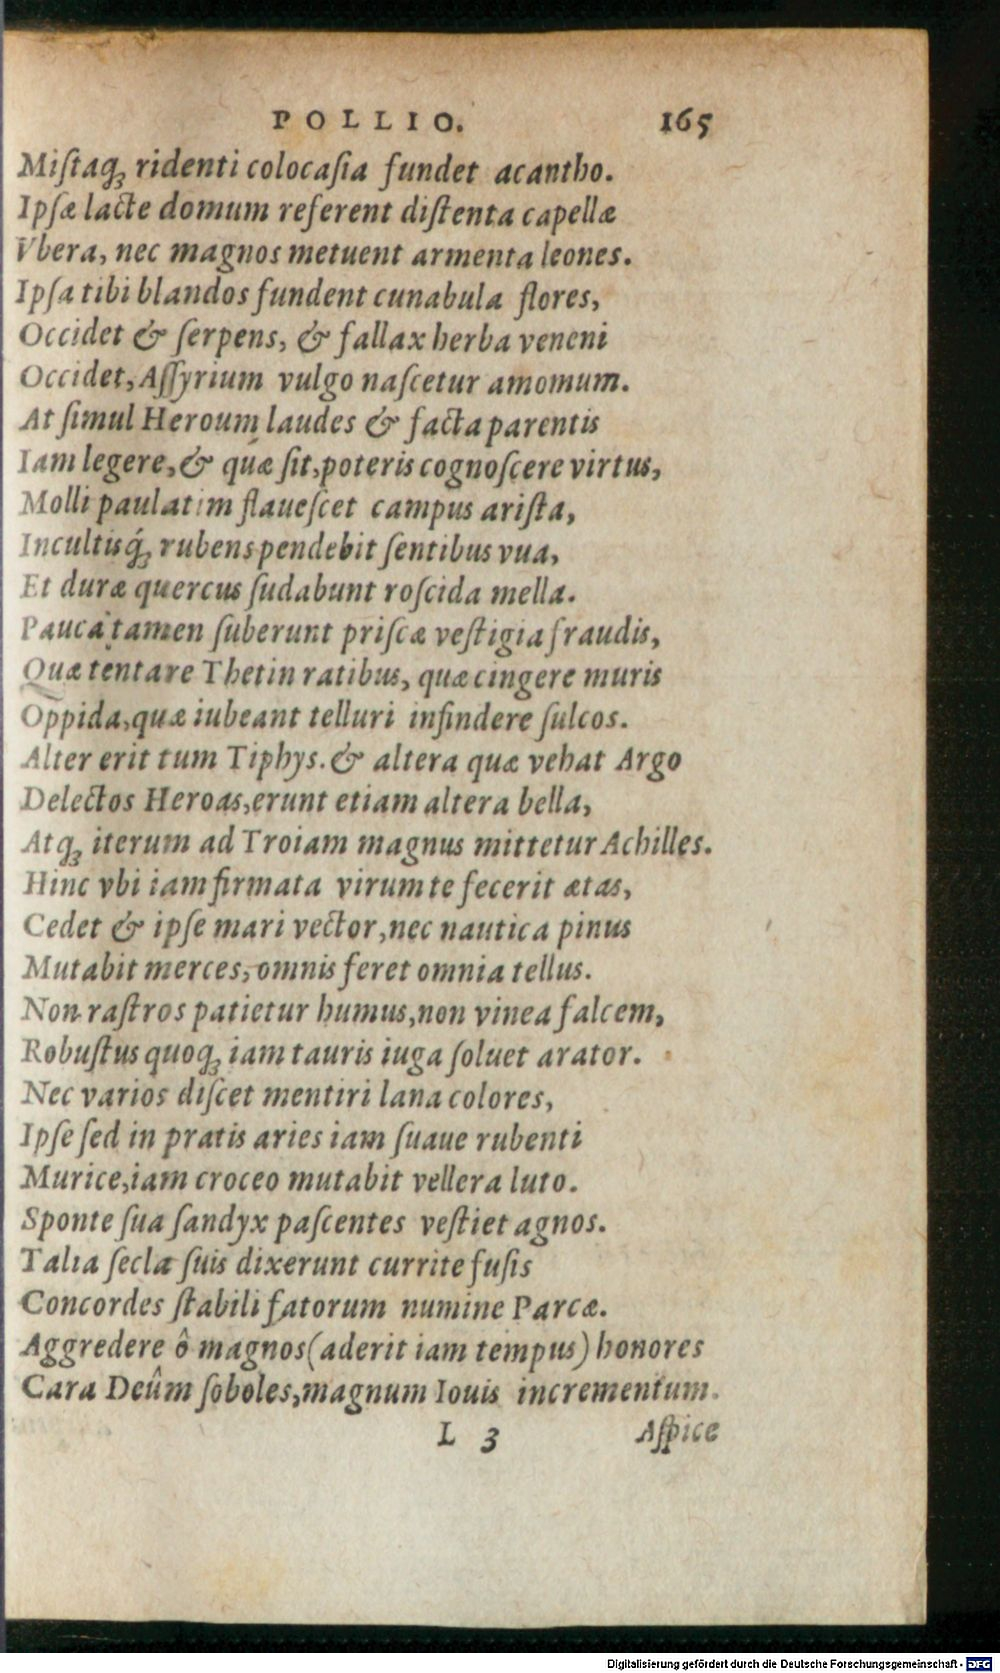 POLLIO. 165
Miſtaq́; ridenti colocaſia fundet acantho.
Ipſæ lacte domum referent diſtenta capellæ
Vbera, nec magnos metuent armenta leones.
Ipſa tibi blandos fundent cunabula flores,
Occidet & ſerpens, & fallax herba veneni
Occidet, Aſſyrium vulgo naſcetur amomum.
At ſimul Heroum laudes & facta parentis
Iam legere, & quæ ſit, poteris cognoſcere virtus,
Molli paulatim flaueſcet campus ariſta,
Incultisq́; rubens pendebit ſentibus vua,
Et duræ quercus ſudabunt roſcida mella.
Pauca tamen ſuberunt priſcæ veſtigia fraudis,
Quæ tentare Thetin ratibus, quæ cingere muris
Oppida, quæ iubeant telluri infindere ſulcos.
Alter erit tum Tiphys. & altera quæ vehat Argo
Delectos Heroas, erunt etiam altera bella,
Atq; iterum ad Troiam magnus mittetur Achilles.
Hinc vbi iam firmata virum te fecerit ætas,
Cedet & ipſe mari vector, nec nautica pinus
Mutabit merces, omnis feret omnia tellus.
Non raſtros patietur humus, non vinea falcem,
Robuſtus quoq; iam tauris iuga ſoluet arator.
Nec varios diſcet mentiri lana colores,
Ipſe ſed in pratis aries iam ſuaue rubenti
Murice, iam croceo mutabit vellera luto.
Sponte ſua ſandyx paſcentes veſtiet agnos.
Talia ſecla ſuis dixerunt currite fuſis
Concordes ſtabili fatorum numine Parcæ.
Aggredere ô magnos (aderit iam tempus) honores
Cara Deûm ſoboles, magnum Iouis incrementum.
L 3 Aſpice
Digitalisierung gefördert durch die Deutsche Forschungsgemeinschaft - DFG